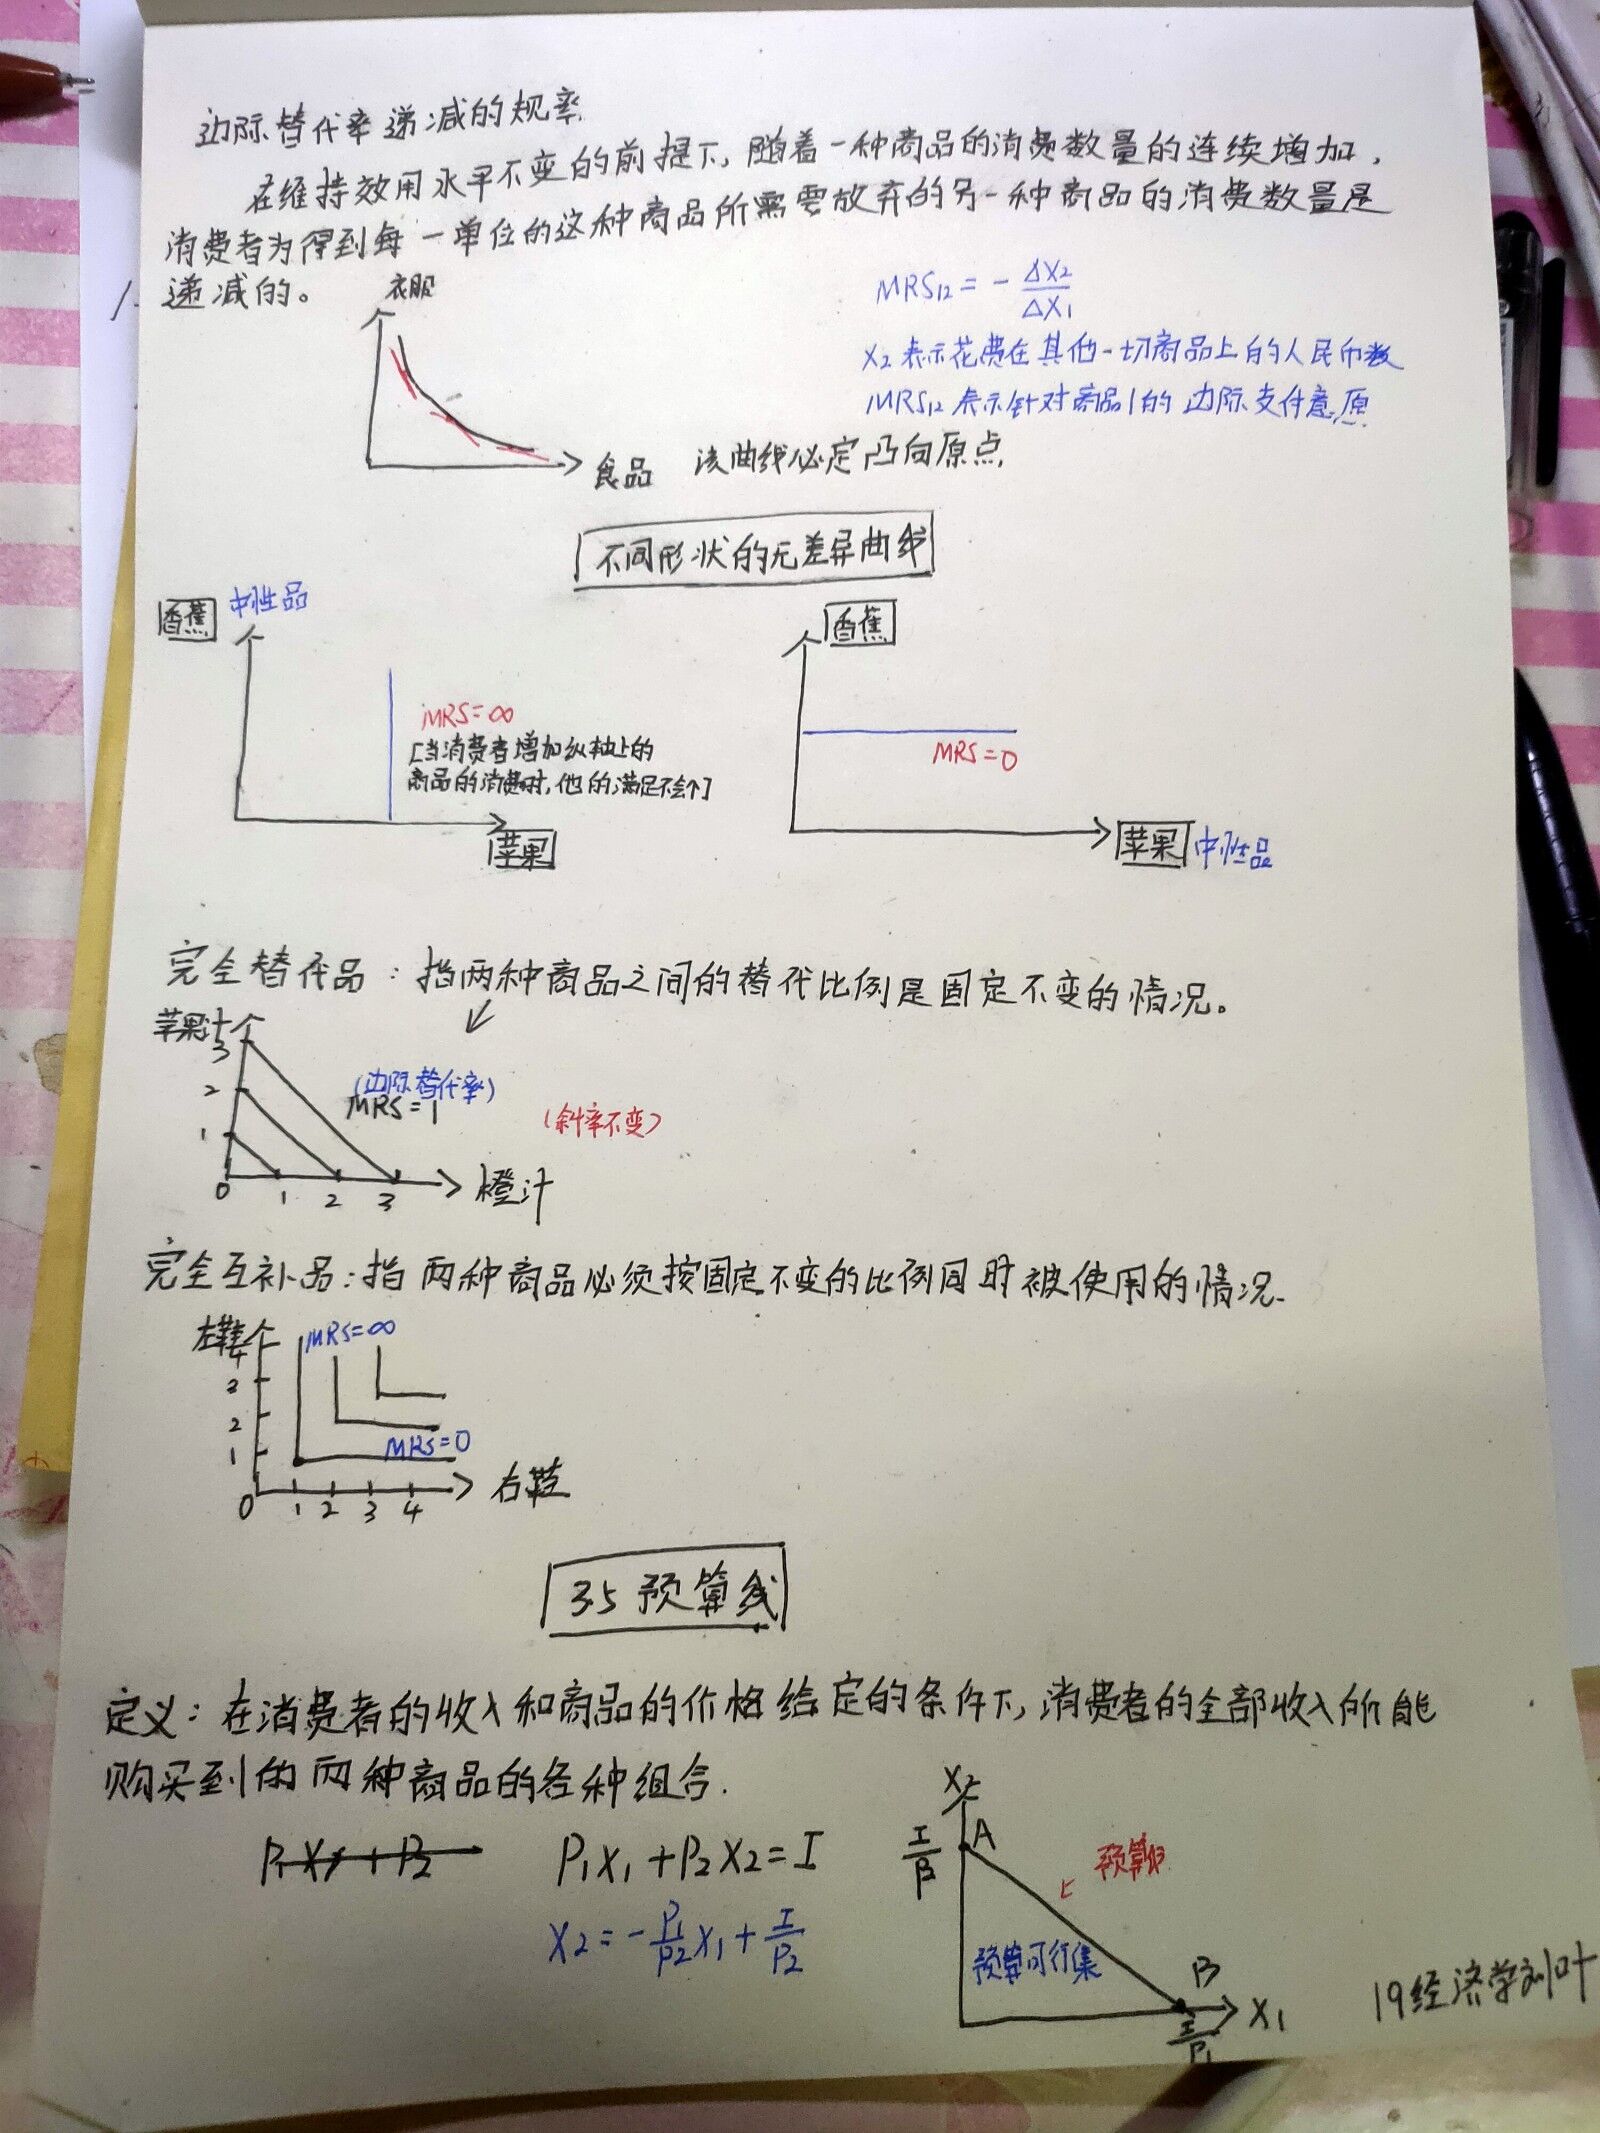 边际替代率递减的规率.
在维持效用水平不变的前提下,随着一种商品的消费数量的连续增加,
消费者为得到每一单位的这种商品所需要放弃的另一种商品的消费数量是
递减的。
衣服
食品
该曲线必定凸向原点.
MRS12 = - ΔX2/ΔX1
X2表示花费在其他一切商品上的人民币数
MRS12表示针对商品1的边际支付意原
不同形状的无差异曲线
香蕉 中性品
MRS=∞
[当消费者增加纵轴上的
商品的消费时,他的满足不会个]
苹果
香蕉
MRS=0
苹果 中性品
完全替代品:指两种商品之间的替代比例是固定不变的情况。
苹果汁
3
2
1
0 1 2 3
橙汁
(边际替代率)
MRS=1
(斜率不变)
完全互补品:指两种商品必须按固定不变的比例同时被使用的情况.
左鞋
4
3
2
1
0 1 2 3 4
右鞋
MRS=∞
MRS=0
3.5 预算线
定义:在消费者的收入和商品的价格给定的条件下,消费者的全部收入所能
购买到的两种商品的各种组合.
P1X1+P2
P1X1+P2X2=I
X2=-P1/P2 X1+I/P2
X2
A
预算线
预算可行集
B
X1
I/P1
19经济学刘叶